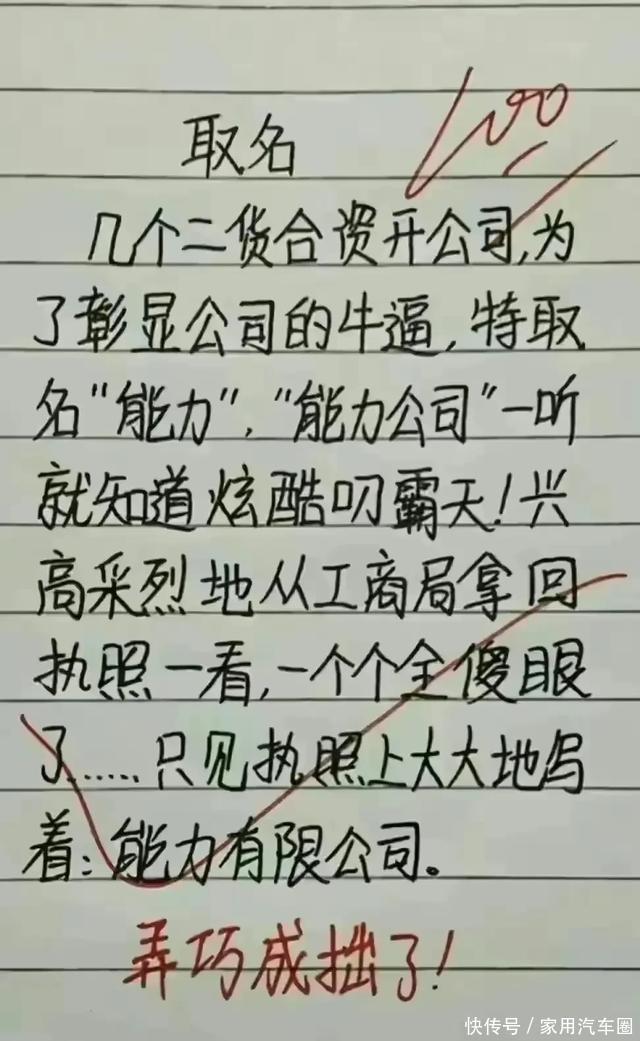 取名
100
几个二货合资开公司,为
了彰显公司的牛逼,特取
名"能力","能力公司"一听
就知道炫酷叼霸天!兴
高采烈地从工商局拿回
执照一看,一个个全傻眼
了……只见执照上大大地写
着:能力有限公司。
弄巧成拙了!
快传号/家用汽车圈